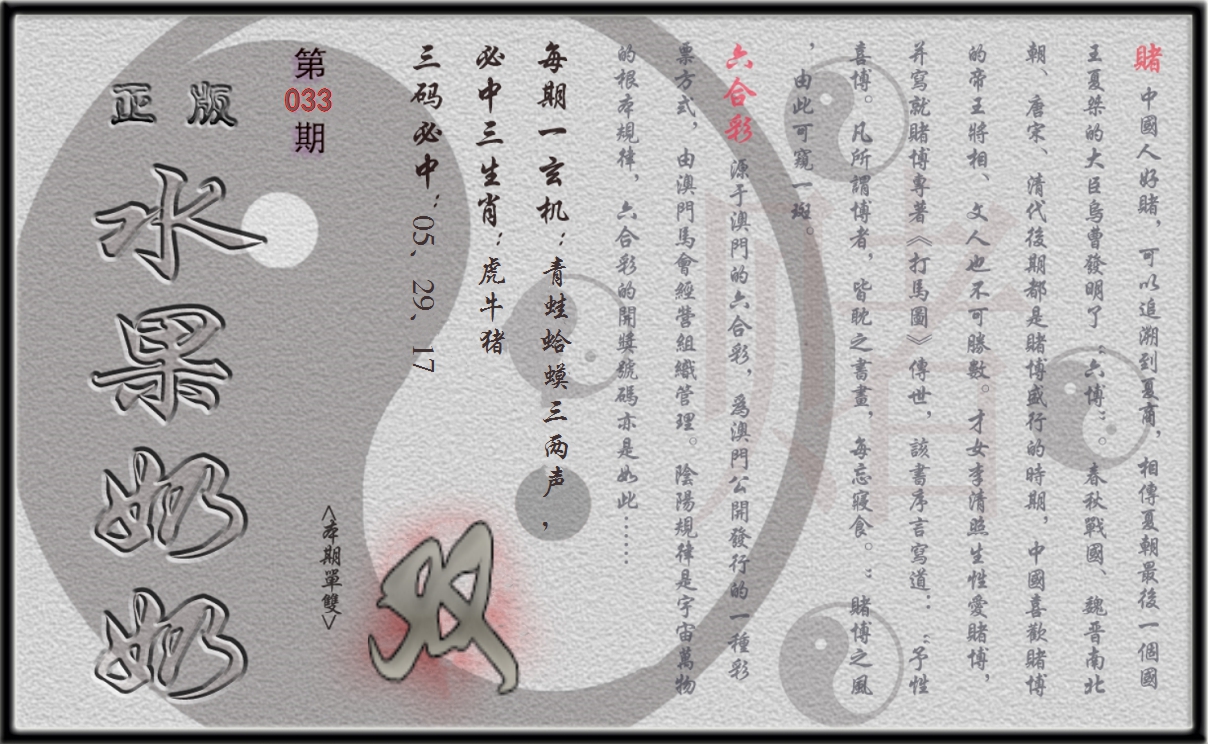 賭 中國人好賭，可以追溯到夏商，相傳夏朝最後一個國
王夏桀的大臣烏曹發明了“六博”。春秋戰國、魏晉南北
朝、唐宋、清代後期都是賭博盛行的時期，中國喜歡賭博
的帝王將相、文人也不可勝數。才女李清照生性愛賭博，
并寫就賭博專著《打馬圖》傳世，該書序言寫道：“予性
喜博。凡所謂博者，皆耽之書畫，每忘寢食。：賭博之風
，由此可窺一斑。
六合彩 源于澳門的六合彩，爲澳門公開發行的一種彩
票方式，由澳門馬會經營組織管理。陰陽規律是宇宙萬物
的根本規律，六合彩的開獎號碼亦是如此……
每期一玄机：青蛙蛤蟆三两声，
必中三生肖：虎牛猪
三码必中：05、29、17
双
<本期單雙>
第
033
期
正版
水果奶奶
赌